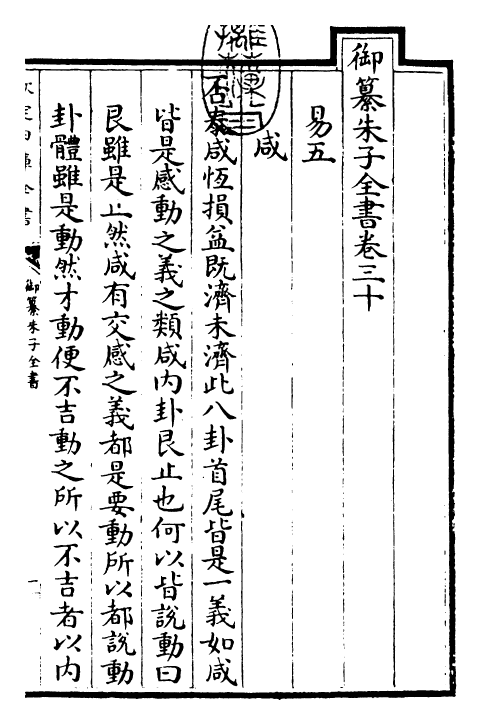 御纂朱子全書卷三十
易五
咸
否泰咸恆損益既濟未濟此八卦首尾皆是一義如咸
皆是感動之義之類咸内卦艮止也何以皆說動曰
艮雖是止然咸有交感之義都是要動所以都說動
卦體雖是動然才動便不吉動之所以不吉者以内
御纂朱子全書
一